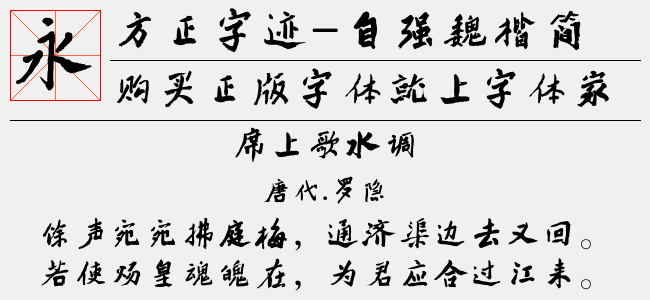 永
方正字迹-自强魏楷简
购买正版字体就上字体家
席上歌水调
唐代.罗隐
馀声宛宛拂庭梅，通济渠边去又回。
若使炀皇魂魄在，为君应合过江来。